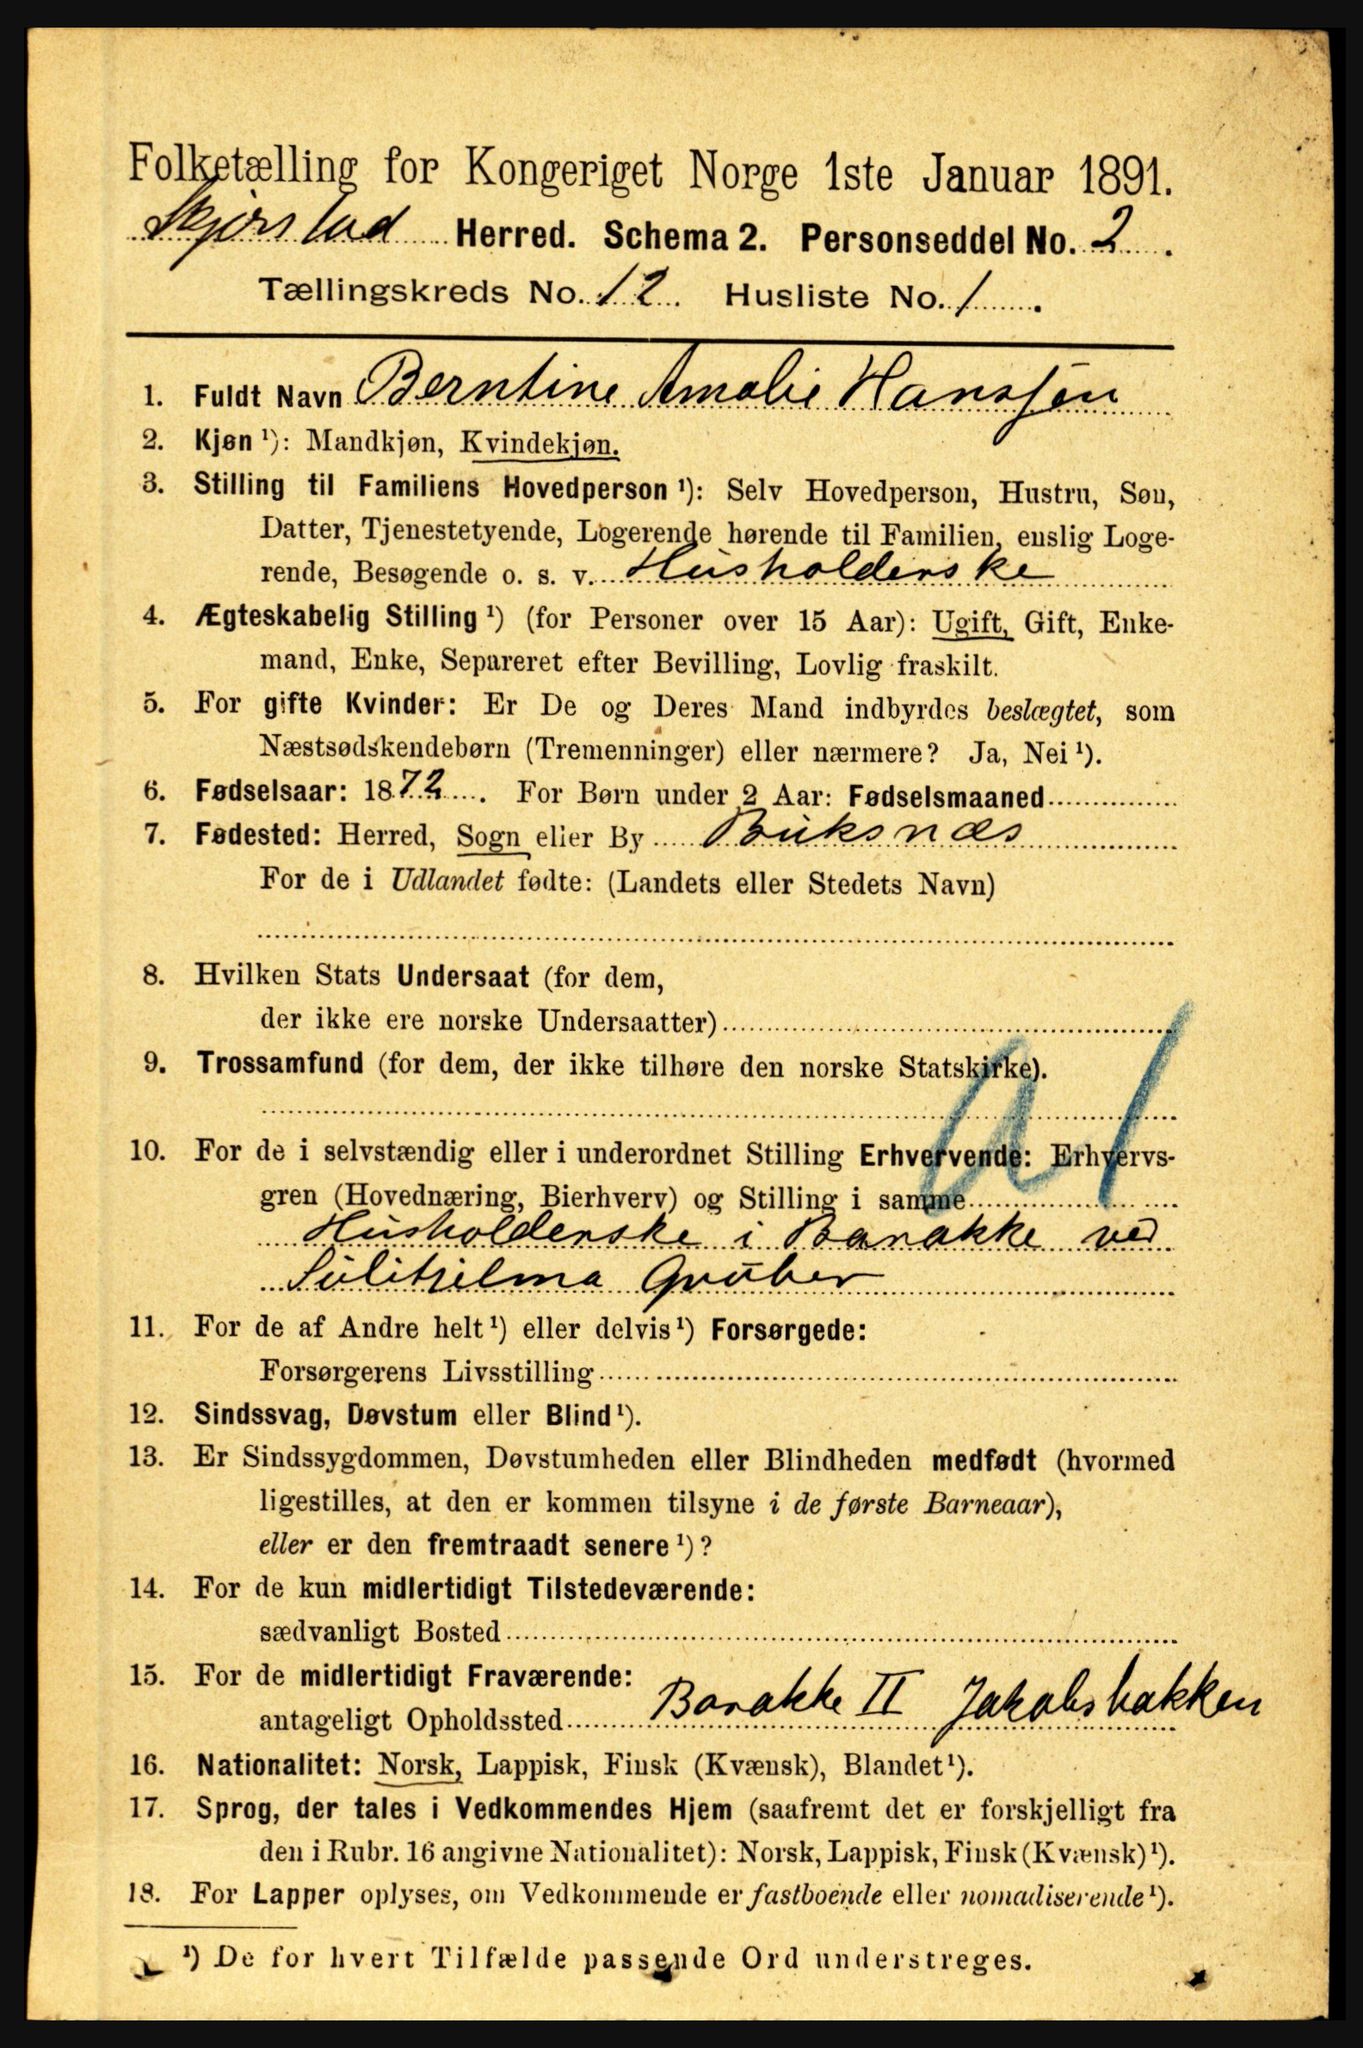 Folketælling for Kongeriget Norge 1ste Januar 1891.
Skjerstad Herred. Schema 2. Personseddel No. 2.
Tællingskreds No. 12 Husliste No. 1.
1. Fuldt Navn Berntine Amalie Hanssen
2. Kjøn ¹): Mandkjøn, Kvindekjøn.
3. Stilling til Familiens Hovedperson ¹): Selv Hovedperson, Hustru, Søn,
Datter, Tjenestetyende, Logerende hørende til Familien, enslig Loge-
rende, Besøgende o. s. v. Husholderske
4. Ægteskabelig Stilling ¹) (for Personer over 15 Aar): Ugift, Gift, Enke-
mand, Enke, Separeret efter Bevilling, Lovlig fraskilt.
5. For gifte Kvinder: Er De og Deres Mand indbyrdes beslægtet, som
Næstsødskendebørn (Tremenninger) eller nærmere? Ja, Nei ¹).
6. Fødselsaar: 1872. For Børn under 2 Aar: Fødselsmaaned
7. Fødested: Herred, Sogn eller By Buksnæs
For de i Udlandet fødte: (Landets eller Stedets Navn)
8. Hvilken Stats Undersaat (for dem,
der ikke ere norske Undersaatter)
9. Trossamfund (for dem, der ikke tilhøre den norske Statskirke).
a1
10. For de i selvstændig eller i underordnet Stilling Erhvervende: Erhvervs-
gren (Hovednæring, Bierhverv) og Stilling i samme
Husholderske i Barakke ved
Sulitjelma Gruber
11. For de af Andre helt ¹) eller delvis ¹) Forsørgede:
Forsørgerens Livsstilling
12. Sindssvag, Døvstum eller Blind ¹).
13. Er Sindssygdommen, Døvstumheden eller Blindheden medfødt (hvormed
ligestilles, at den er kommen tilsyne i de første Barneaar),
eller er den fremtraadt senere ¹)?
14. For de kun midlertidigt Tilstedeværende:
sædvanligt Bosted
15. For de midlertidigt Fraværende:
antageligt Opholdssted Barakke II Jakobsbakken
16. Nationalitet: Norsk, Lappisk, Finsk (Kvænsk), Blandet ¹).
17. Sprog, der tales i Vedkommendes Hjem (saafremt det er forskjelligt fra
den i Rubr. 16 angivne Nationalitet): Norsk, Lappisk, Finsk (Kvænsk) ¹).
18. For Lapper oplyses, om Vedkommende er fastboende eller nomadiserende ¹).
¹) De for hvert Tilfælde passende Ord understreges.